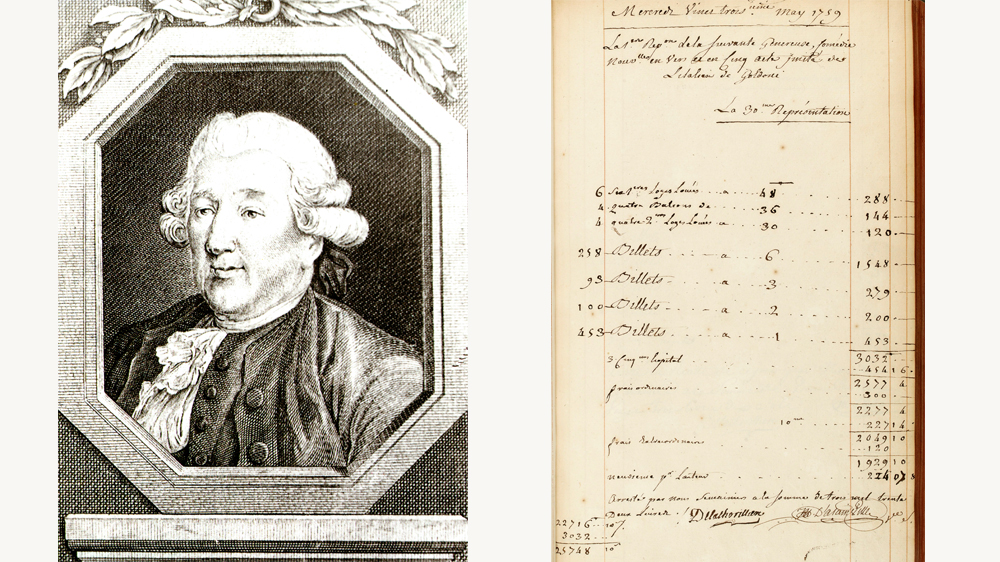 Mercredi Vingt trois.ieme May 1759
La 1ere Repon de la suivante Genereuse, Comédie
Nouvlle en Vers et en Cinq acte Imité de
L'italien de Goldoni
La 30.me Représentation
6 Six 1eres Loges Louées a 48 288
4 quatre Balcons de 36 144
4 quatre 2.mes Loges Louées a 30 120
258 Billets a 6 1548
93 Billets a 3 279
100 Billets a 2 200
453 Billets a 1 453
3032
3 Cinq.mes hopital 454 16
2577 4
frais ordinaires 300
2277 4
10.me 227 14
2049 10
frais Extraordinaires 120
1929 10
neuvieme pr. L'auteur
Arresté par nous Semainiers a la somme de trois mil trente
Deux Livres
22716 10
3032
25748 10